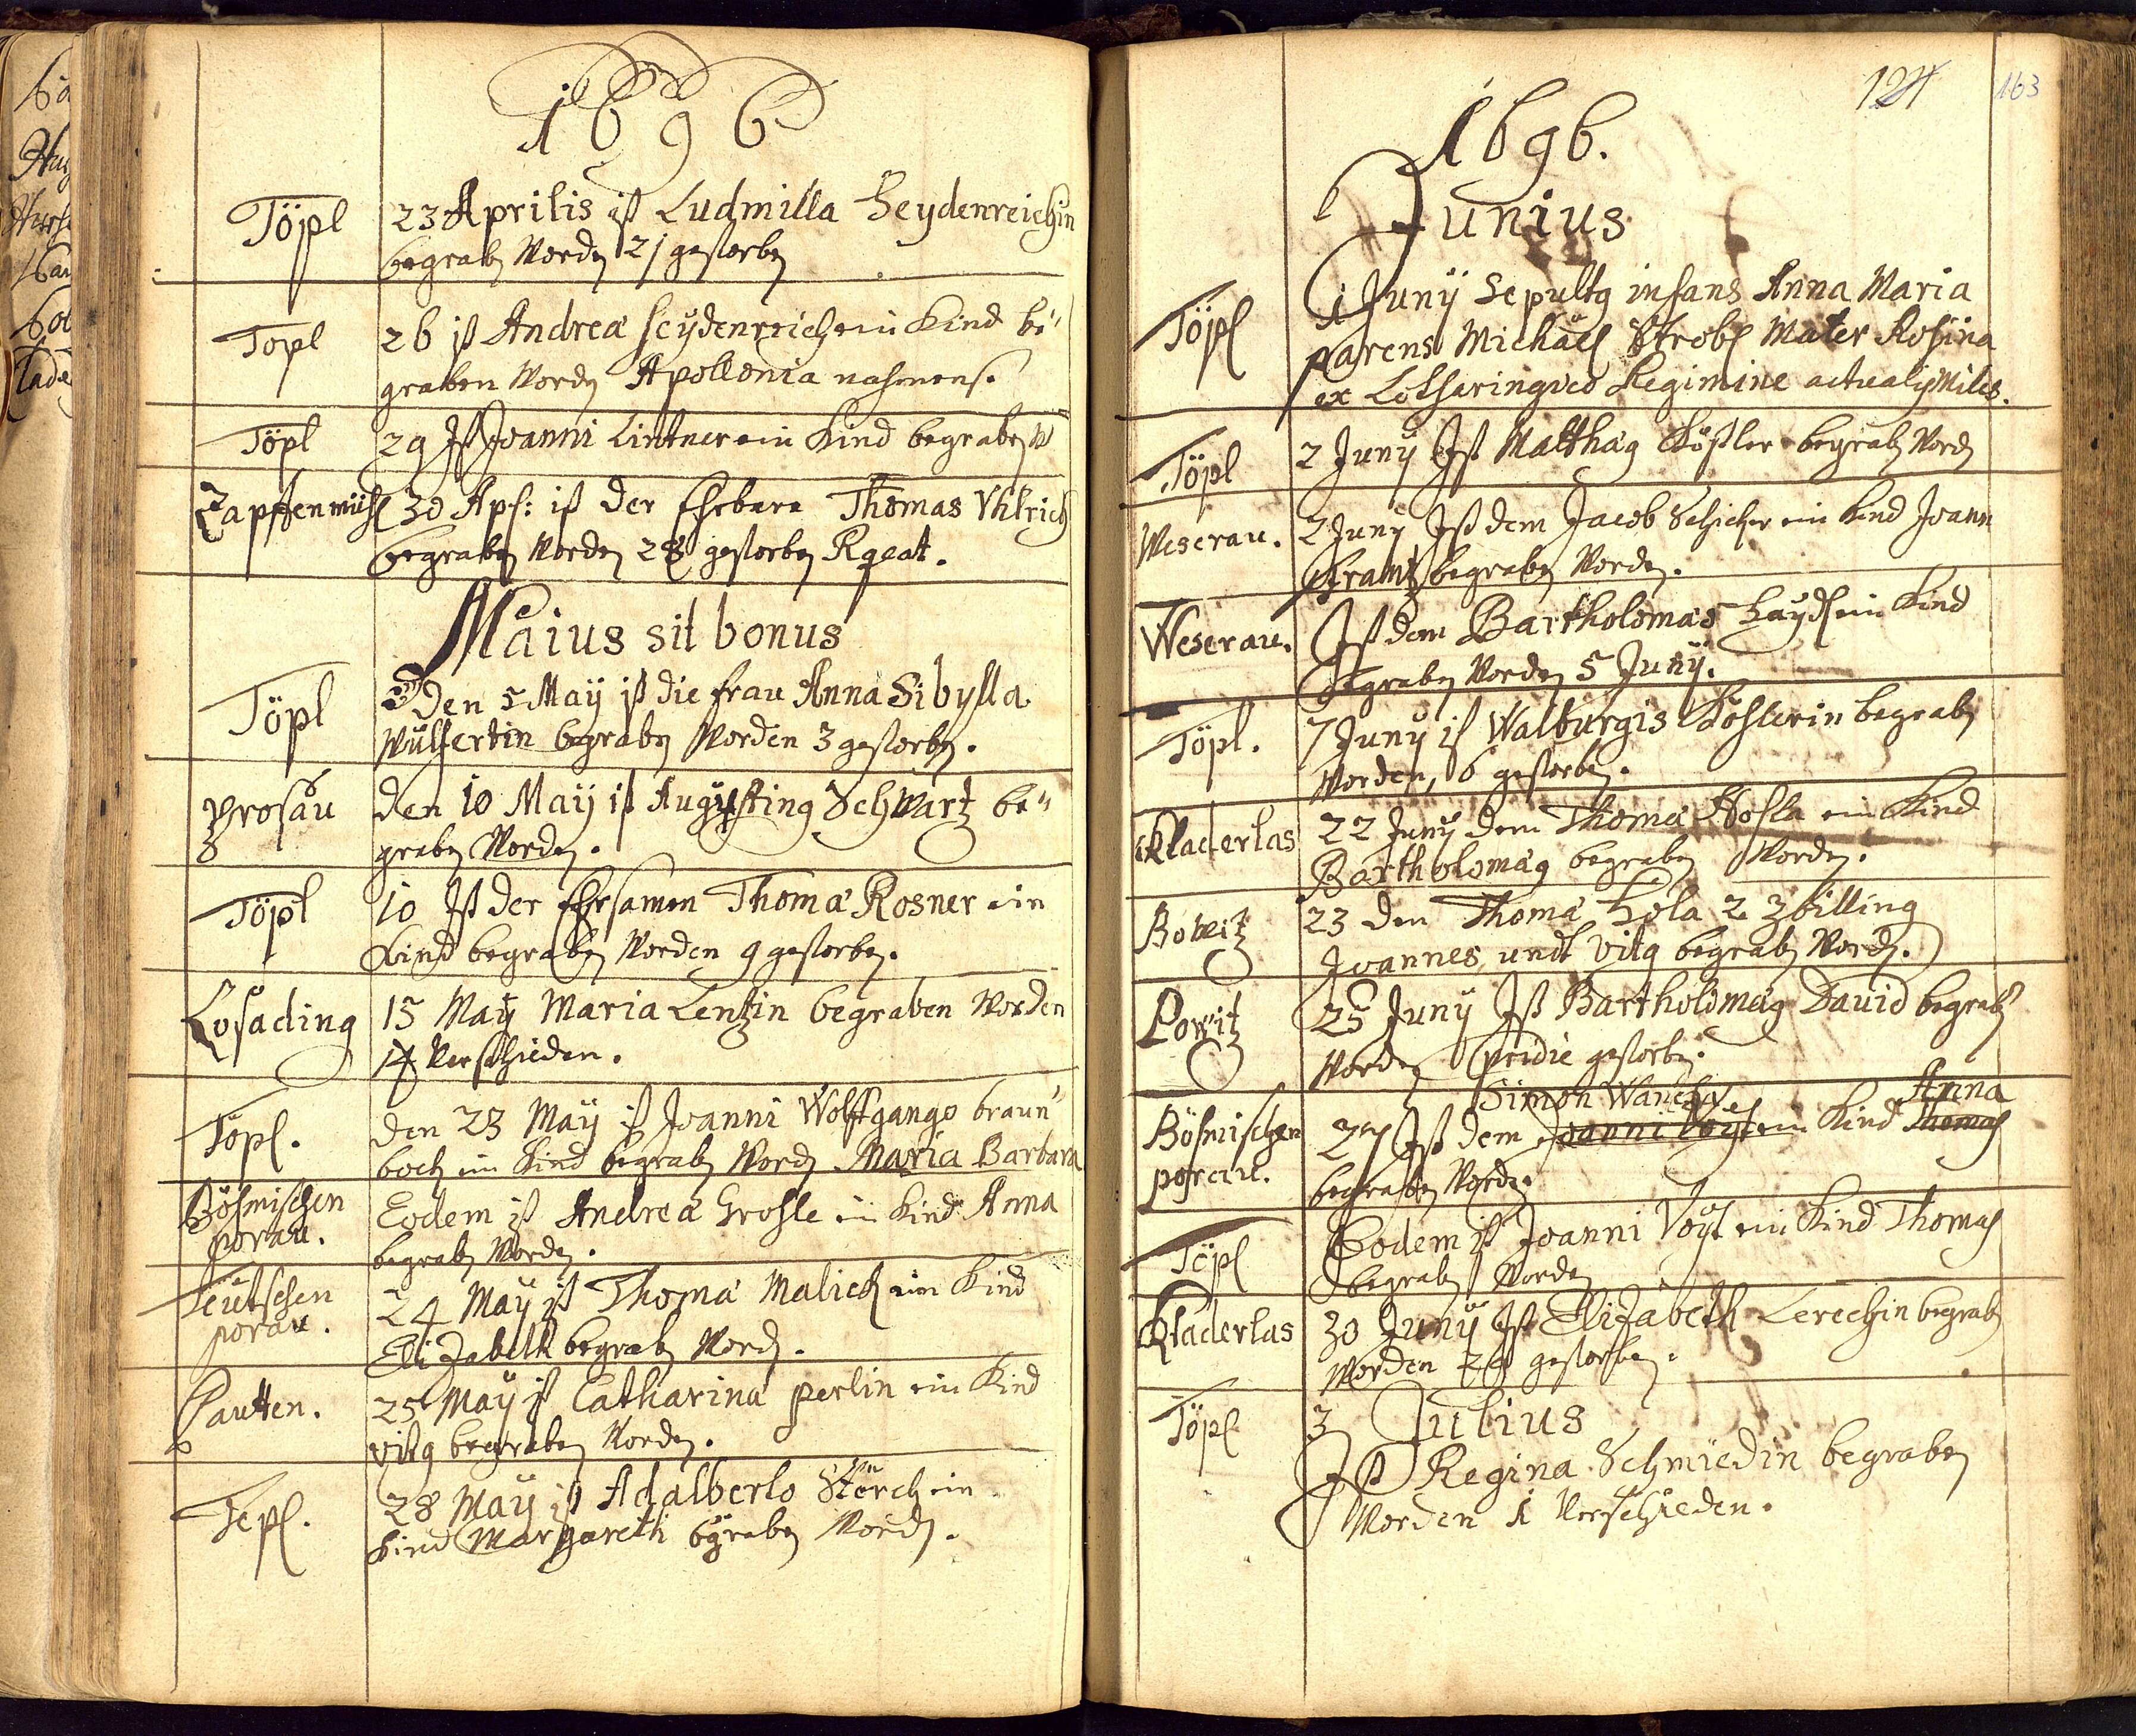 1696
Töpl 23 Aprilis ist Ludmilla Heydenreichin
begraben worden 21 gestorben
Topl 26 ist Andreä heydenreich ein Kind be-
graben worden Apollonia nahmens.
Töpl 29 Ist Joanni Lintner ein Kind begraben w
Zapffenmühl 30 Apl: ist der Ehrbare Thomas Vhlrich
begraben worden 28 gestorben Rqeat.
Maius sit bonus
Töpl Den 5 Maÿ ist die frau Anna Sibylla
Wülfertin begraben worden 3 gestorben.
Prosau den 10 Maÿ ist Augustinq Schwartz be-
graben worden.
Töpl 10 Ist der Ehrsamen Thoma Rosner ein
Kind begraben worden 9 gestorben.
Losading 15 Maÿ Maria Lentzin begraben worden
14 verschieden.
Töpl. den 23 Maÿ ist Joanni Wolffgango braun-
bock ein Kind begraben worden Maria Barbara
Böhmischen
porau. Eodem ist Andrea Grohle ein Kind Anna
begraben worden.
Teütschen
porau. 24 Maÿ ist Thoma Malick ein Kind
Elizabeth begraben worden.
Pautten. 25 Maÿ ist Catharina perlin ein Kind
vitq begraben worden.
Tepl. 28 Maÿ ist Adalberto Störck ein
Kind Margareth begraben worden.
124 163
1696.
Junius
Töpl 1 Junÿ Sepultq infans Anna Maria
parens Michäel Strobl Mater Rosina
ex Lotharingico Regimine actualis Miles.
Töpl 2 Junÿ Ist Matthäq Kößler begraben worden
Weserau. 2 Junÿ Ist dem Jacob Schicker ein Kind Joann
Frantz begraben worden.
Weserau. Ist dem Bartholomäo Haydl ein Kind
begraben worden 5 Junÿ.
Töpl. 7 Junÿ ist Walburgis Kößlerin begraben
worden, 6 gestorben.
Kladerlas 22 Junÿ dem Thoma Hosla ein Kind
Bartholomäq begraben worden.
Boweitz 23 den Thoma Hola 2 Zbilling
Joannes undt vitq begraben worden.
Powitz 25 Junÿ Ist Bartholomäq David begraben
worden pridie gestorben.
Simon Wancka Anna
Böhmischen
porau. 27 Ist dem Joanni Voÿt ein Kind Thomas
begraben worden.
Töpl Eodem ist Joanni Voÿt ein Kind Thomas
begraben worden
Kladerlas 30 Junÿ Ist Elizabeth Lerechin begraben
worden gestorben.
Töpl 3 Julius
Ist Regina Schmiedin begraben
worden 1 verschieden.